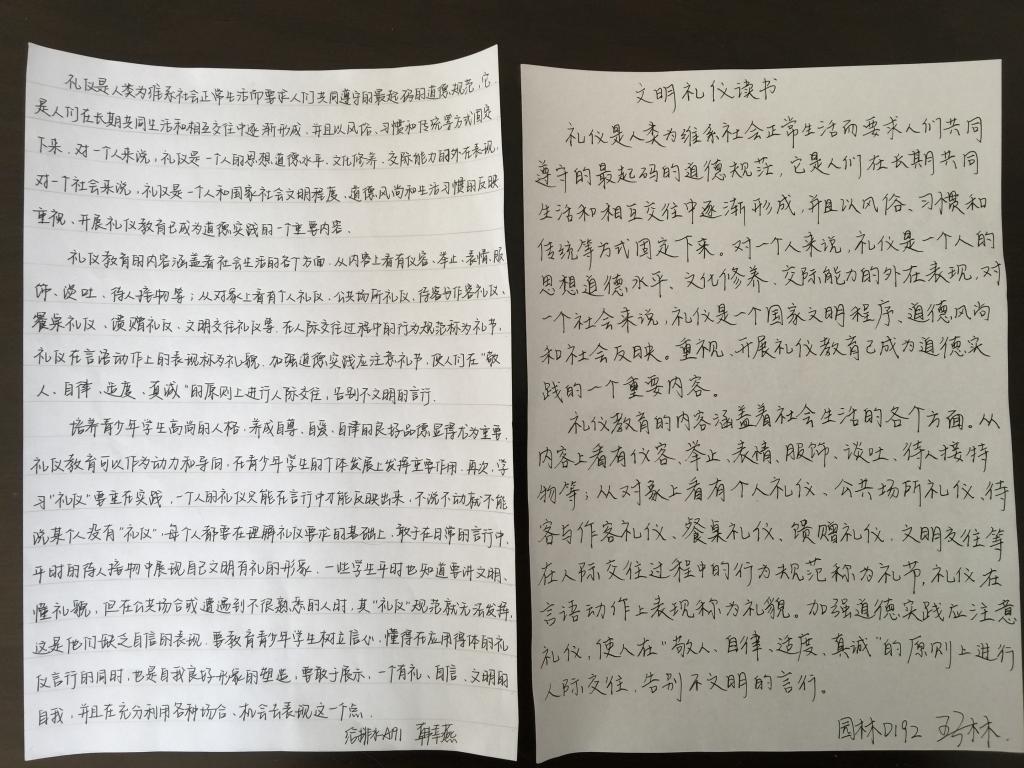 礼仪是人类为维系社会正常生活而要求人们共同遵守的最起码的道德规范,它
是人们在长期共同生活和相互交往中逐渐形成,并且以风俗、习惯和传统等方式固定
下来.对一个人来说,礼仪是一个人的思想道德水平、文化修养、交际能力的外在表现,
对一个社会来说,礼仪是一个人和国家社会文明程度、道德风尚和生活习惯的反映
重视、开展礼仪教育已成为道德实践的一个重要内容.
礼仪教育的内容涵盖着社会生活的各个方面.从内容上看有仪容、举止、表情、服
饰、谈吐、待人接物等;从对象上看有个人礼仪、公共场所礼仪、待客与作客礼仪、
餐桌礼仪、馈赠礼仪、文明交往礼仪等.在人际交往过程中的行为规范称为礼节,
礼仪在言语动作上的表现称为礼貌.加强道德实践应注意礼节,使人们在“敬
人、自律、适度、真诚”的原则上进行人际交往,告别不文明的言行.
培养青少年学生高尚的人格,养成自尊、自爱、自律的良好品德显得尤为重要,
礼仪教育可以作为动力和导向,在青少年学生的个体发展上发挥重要作用.再次,学
习“礼仪”要重在实践,一个人的礼仪只能在言行中才能反映出来,不说不动就不能
说某个人没有“礼仪”,每个人都要在理解礼仪要求的基础上,敢于在日常的言行中,
平时的待人接物中展现自己文明有礼的形象.一些学生平时也知道要讲文明、
懂礼貌,但在公共场合或遭遇到不很熟悉的人时,其“礼仪”规范就无法发挥,
这是他们缺乏自信的表现.要教育青少年学生树立信心,懂得在应用得体的礼
仪言行的同时,也是自我良好形象的塑造,要敢于展示,一个有礼、自信、文明的
自我,并且在充分利用各种场合、机会去表现这一个点.
给排水A191
文明礼仪读书
礼仪是人类为维系社会正常生活而要求人们共同
遵守的最起码的道德规范,它是人们在长期共同
生活和相互交往中逐渐形成,并且以风俗、习惯和
传统等方式固定下来。对一个人来说,礼仪是一个人的
思想道德水平、文化修养、交际能力的外在表现,对
一个社会来说,礼仪是一个国家文明程序、道德风尚
和社会反映。重视、开展礼仪教育已成为道德实
践的一个重要内容。
礼仪教育的内容涵盖着社会生活的各个方面。从
内容上看有仪客、举止、表精、服饰、谈吐、待人接特
物等;从对象上看有个人礼仪、公共场所礼仪、待
客与作客礼仪、餐桌礼仪、馈赠礼仪、文明交往等
在人际交往过程中的行为规范称为礼节,礼仪在
言语动作上表现称为礼貌。加强道德实践应注意
礼仪,使人在“敬人、自律、适度、真诚”的原则上进行
人际交往,告别不文明的言行。
园林D192